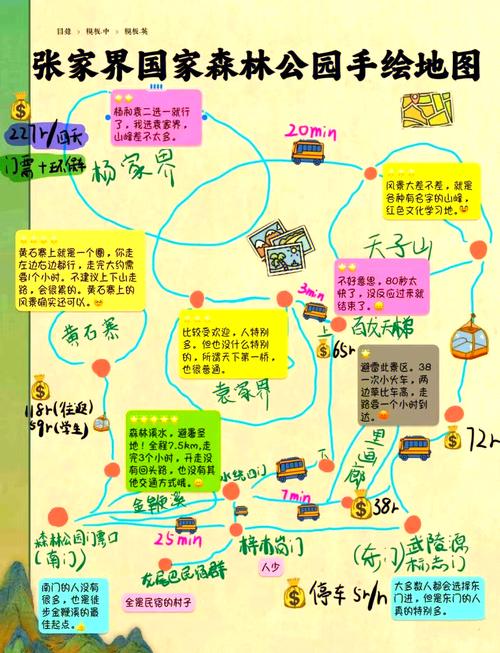 目錄 › 模板.中 › 模板.英
张家界国家森林公园手绘地图
杨和袁二选一就行
了,我选袁家界,
山峰差不太多。
227r/四天
门票+环保
杨家界
20min
风景大差不差,就是
各种有名字的山峰,
红色文化学习地。
天子山
黄石寨上就是一个圈,你走
左边右边都行,走完大约需
要1个小时。不建议上下山走
路,会很累的。黄石寨上的
风景确实还可以。
黄石寨
3min
不好意思,80秒太
快了,没反应过来就
结束了。
上
百龙天梯
65r
比较受欢迎,人特别
多。但也没什么特别
的,所谓天下第一桥,
也很普通。
袁家界
避雷此景区。38
一次小火车,两
边草比车高,走
路要一个小时到
达。
118r(往返)
59r(学生)
72r
森林溪水,避暑圣
地!全程7.5km,走
完3个小时,开走没
有回头路,也没有其
他交通方式哦。
金鞭溪
水绕四门
下
十里画廊
7min
38r
25min
森林公园门票口
(南门)
梓木岗门
(东门)武陵源
标志门
人少
南门的人没有
很多,也是徒
步金鞭溪的最
佳起点。
全是民宿的村子
停车5r/h
大多数人都会选择东
门进,但是东门的人
真的特别多。